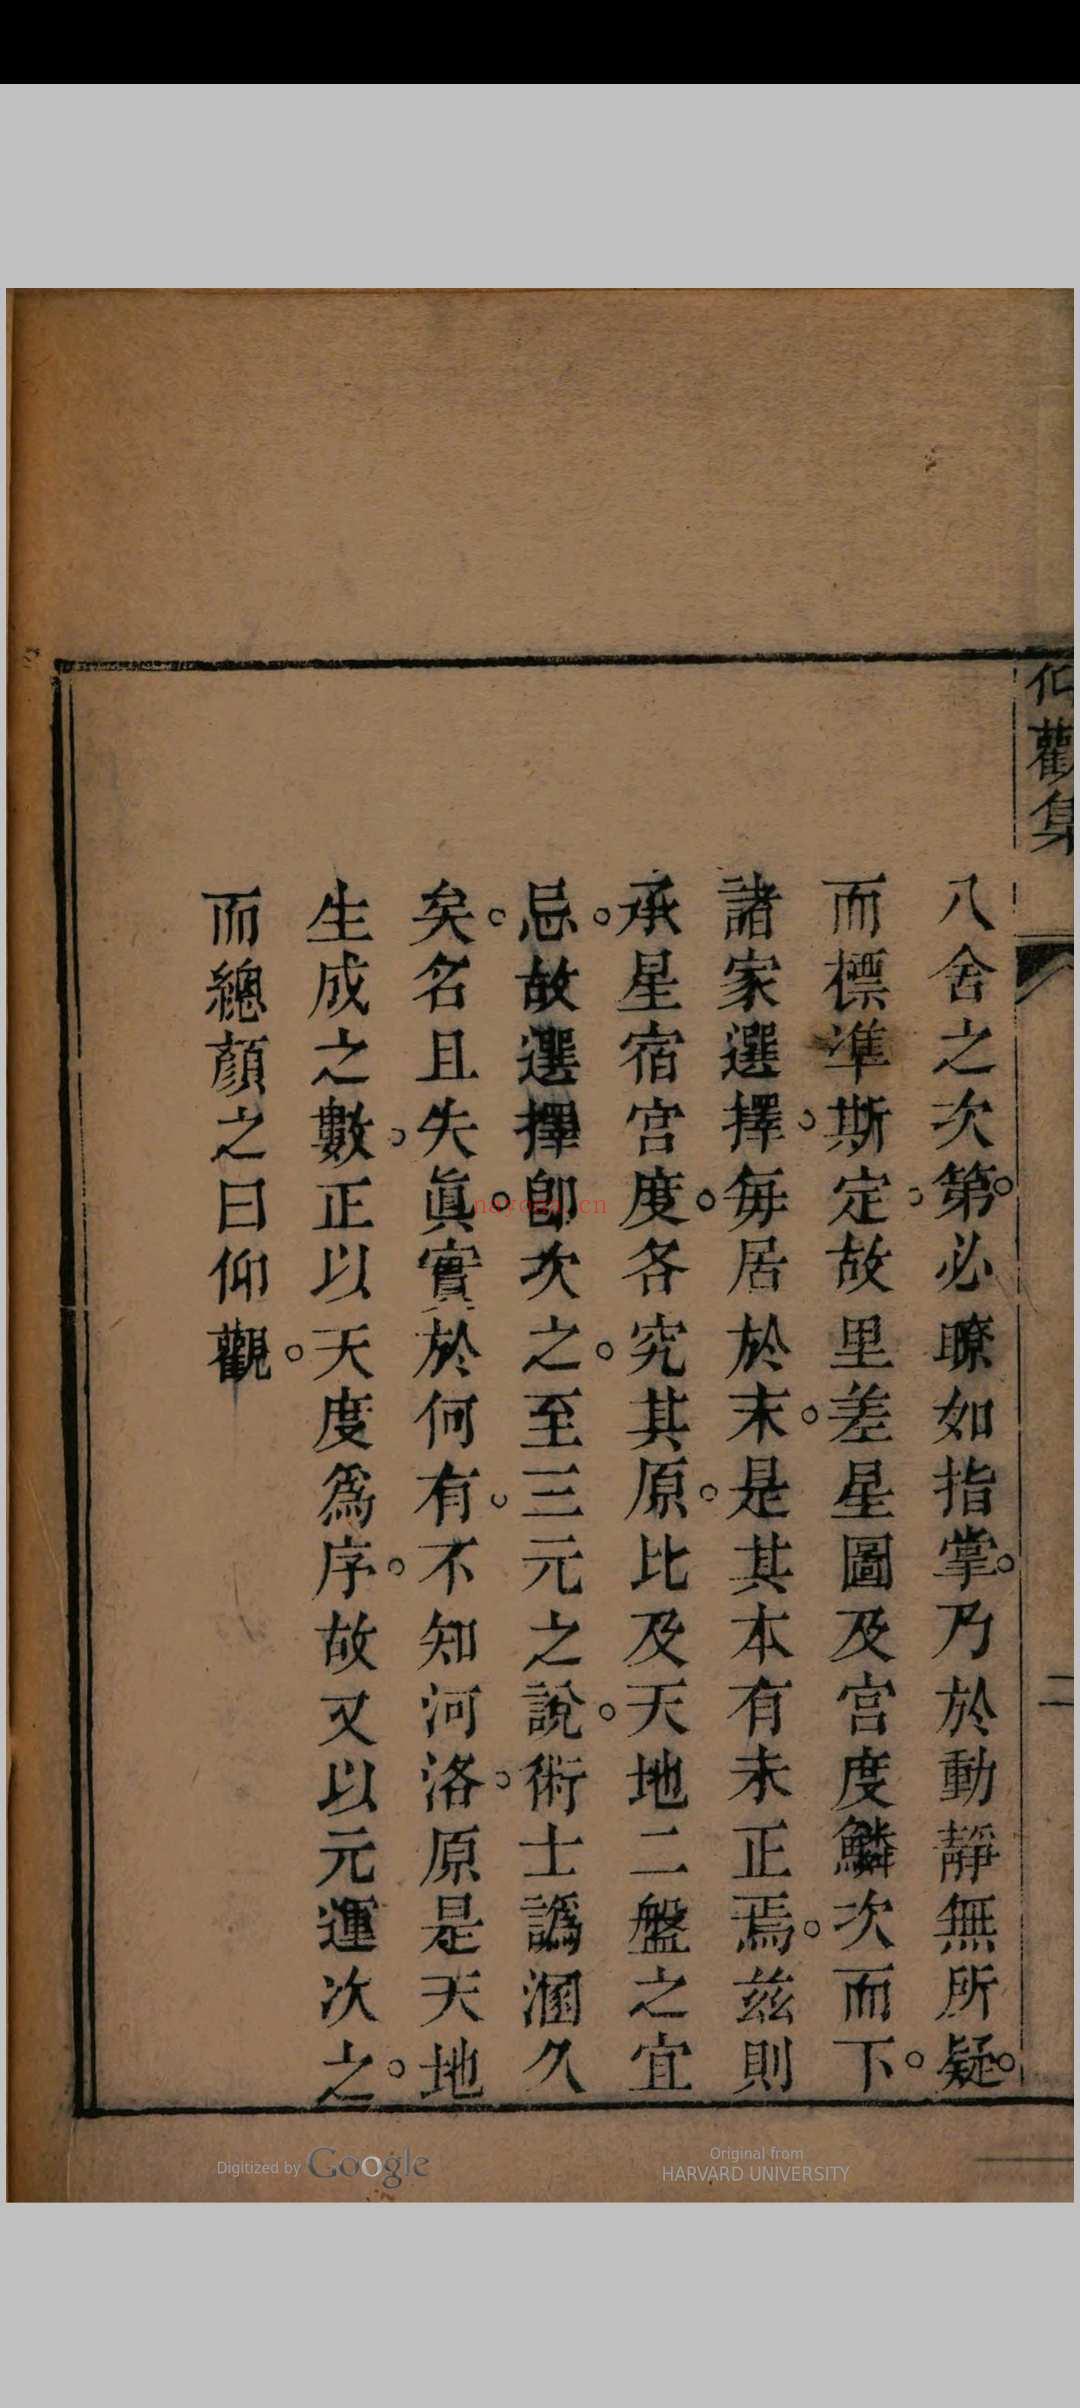 仰觀集
二
八舍之次第。必瞭如指掌。乃於動靜無所疑。
而標準斯定。故里差星圖及宮度鱗次而下。
諸家選擇。每居於末。是其本有未正焉。茲則
承星宿宮度。各究其原。比及天地二盤之宜
忌。故選擇卽次之。至三元之說。術士譌溷久
矣。名且失眞。實於何有。不知河洛。原是天地
生成之數。正以天度爲序。故又以元運次之。
而總顏之曰仰觀。
nayona.cn
Digitized by Google
Original from
HARVARD UNIVERSITY